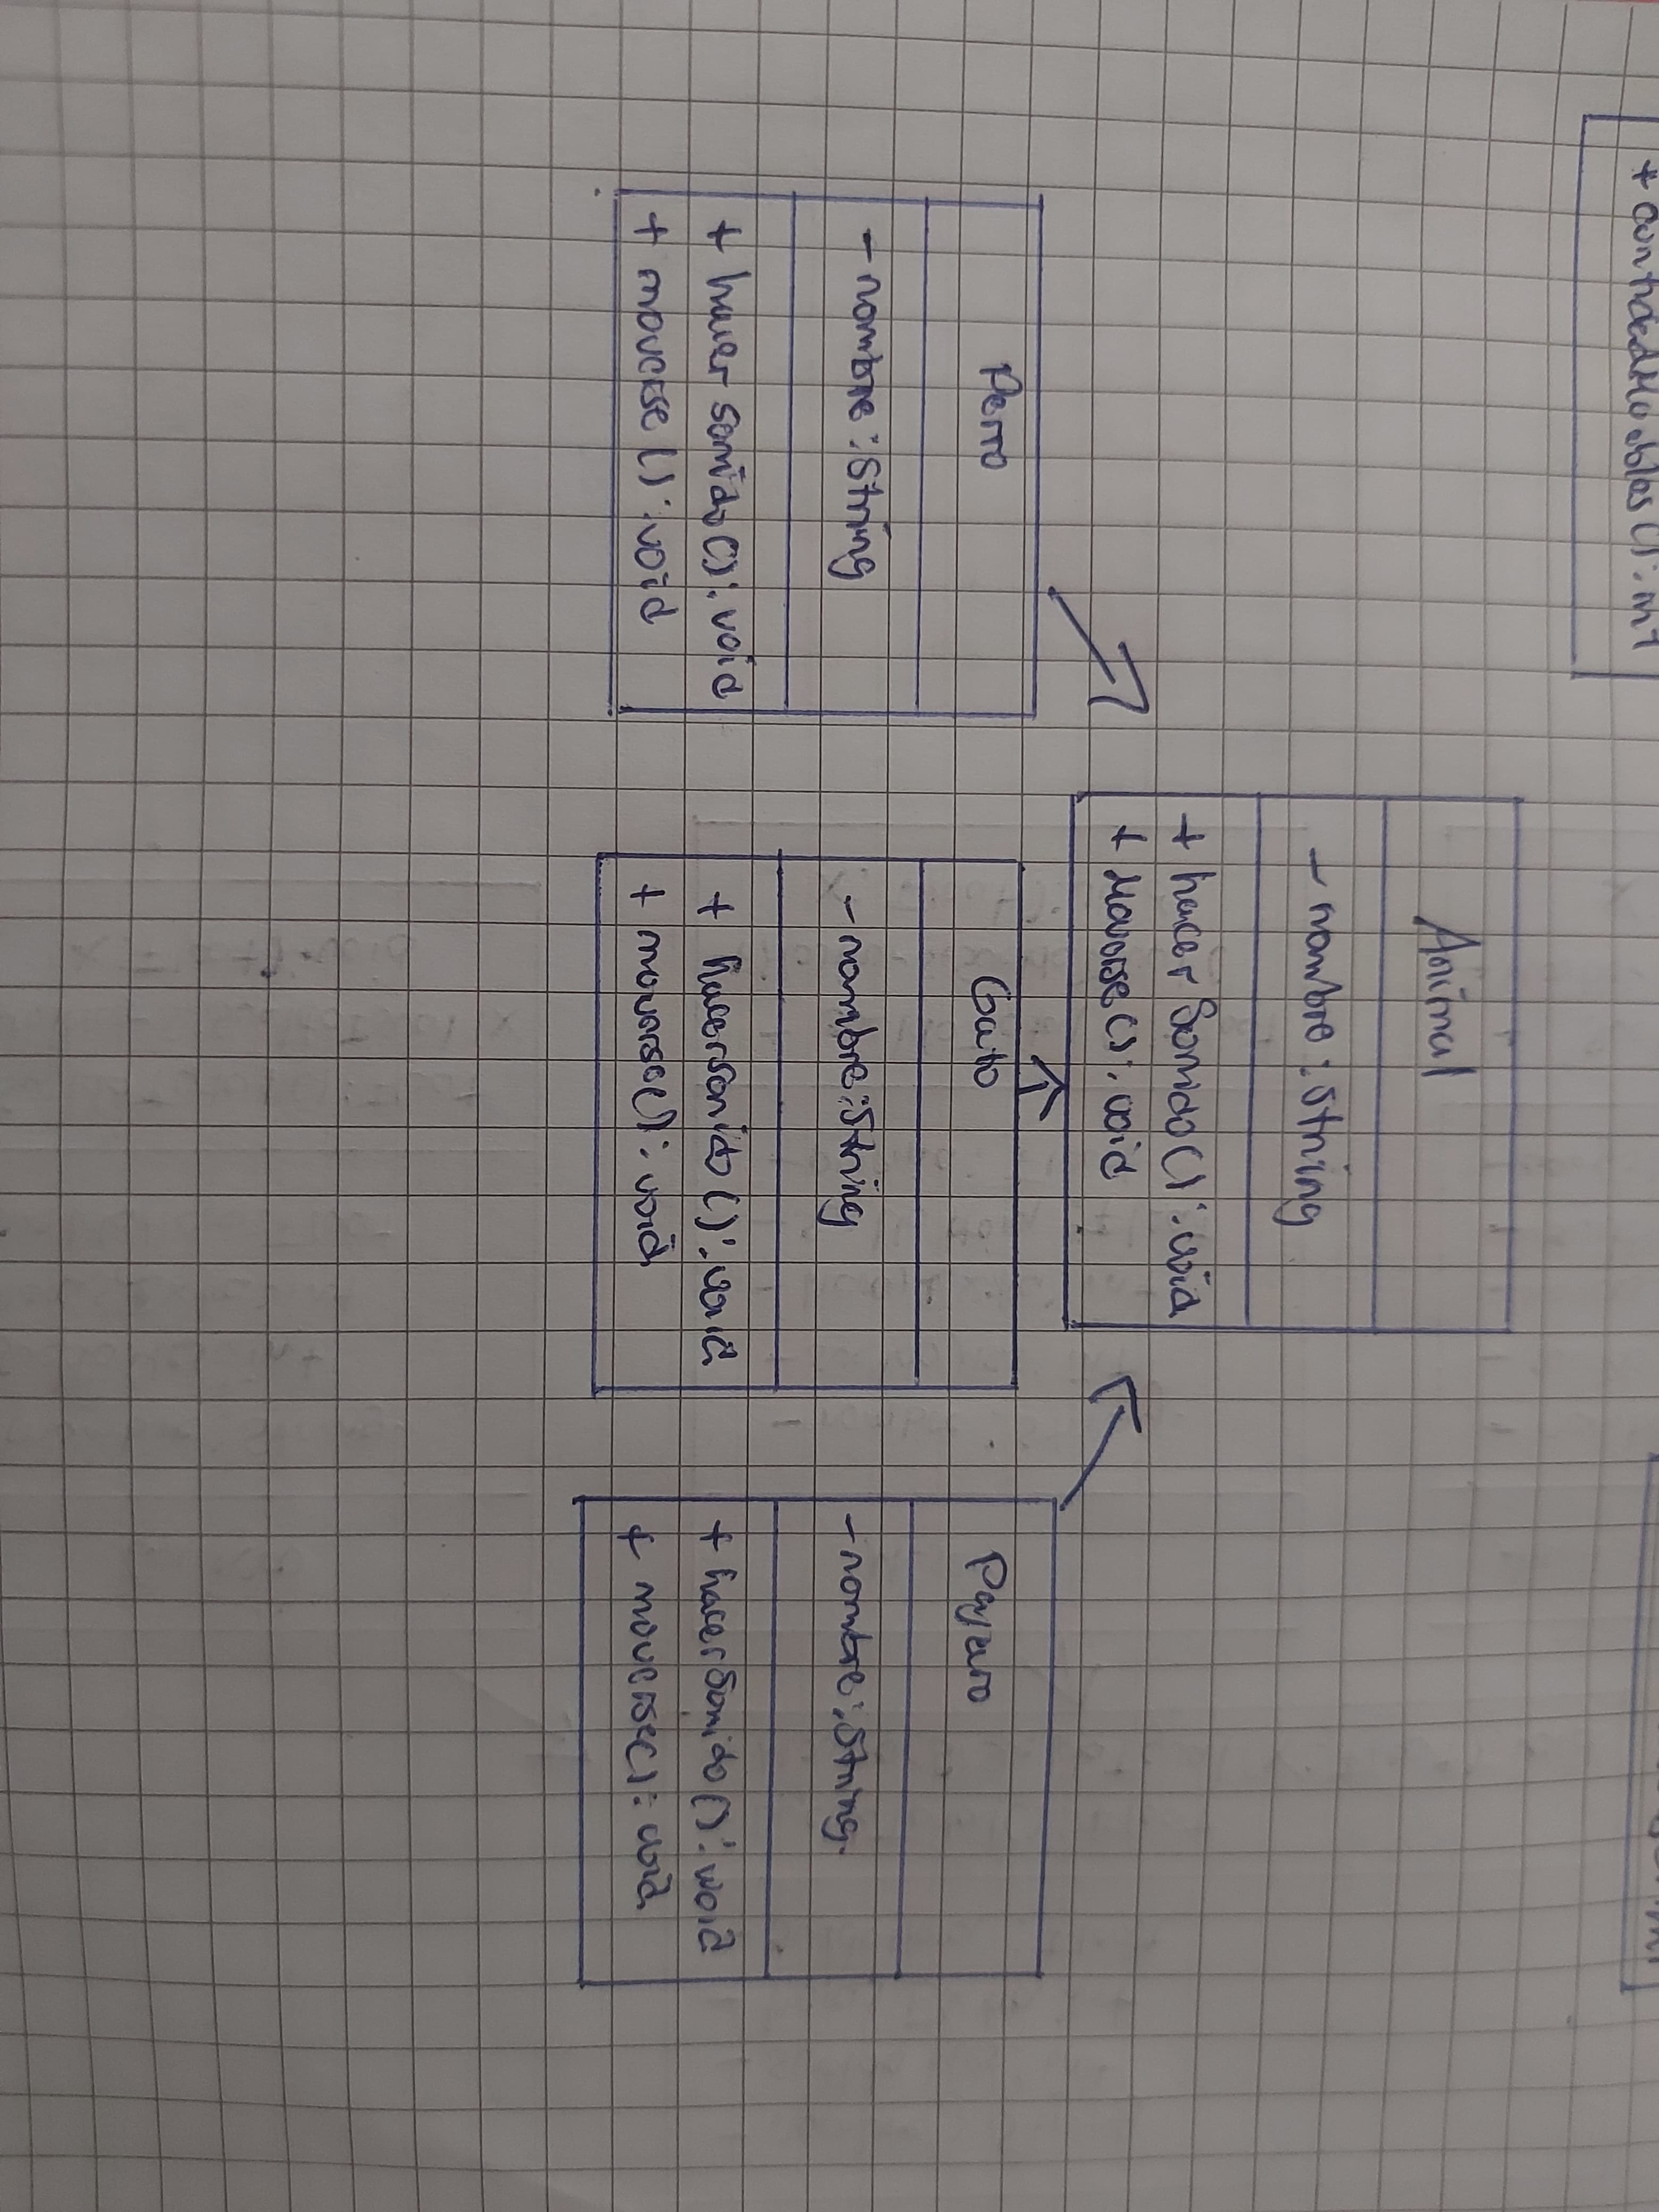 + cantidadMuebles(): int
Animal
- nombre: String
+ hacer Sonido(): void
+ Moverse(): void
Perro
- nombre: String
+ hacer sonido(): void
+ moverse(): void
Gato
- nombre: String
+ hacersonido(): void
+ moverse(): void
Pajaro
- nombre: String.
+ hacerSonido(): void
+ moverse(): void